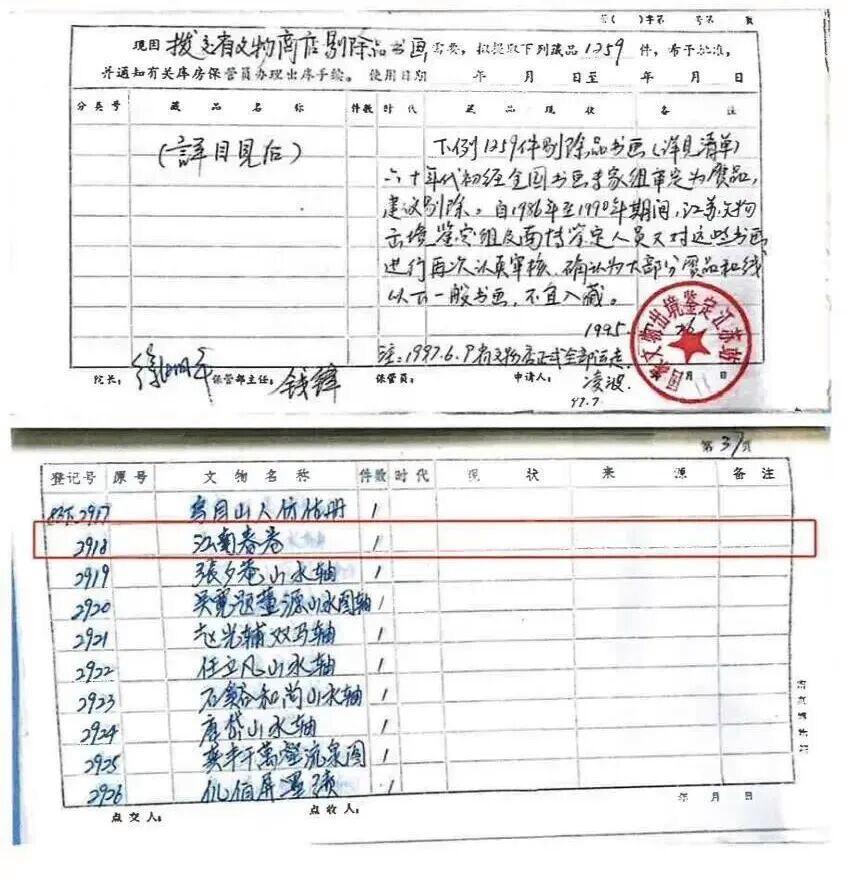 第( )字第 号第 页
现因 拨交省文物商店剔除品书画 需要，拟提取下列藏品 1259 件，希予批准，
并通知有关库房保管员办理出库手续。使用日期 年 月 日至 年 月 日
分类号 藏品名称 件数 时代 藏品现状 备注
(詳目見后)
下列1259件剔除品书画(详见清单)
六十年代初经全国书画专家组审定为赝品，
建议剔除。自1986年至1990年期间，江苏文物
出境鉴定组及南博鉴定人员又对这些书画
进行再次认真审核，确认为大部分赝品和线
以云一般书画，不宜入藏。
1995
注：1997.6.9省文物店正式全部运走
院长： 徐湖平 保管部主任： 钱锋 保管员： 申请人： 凌波 月 日
97.7.
国家文物出境鉴定江苏站
第 37 页
登记号 原号 文物名称 件数 时代 现状 来源 备注
2917 乌目山人仿古册 1
2918 江南春卷 1
2919 張夕庵山水轴 1
2920 吴寛题董源山水图轴 1
2921 赵光辅双马轴 1
2922 任立凡山水轴 1
2923 石溪和尚山水轴 1
2924 唐岱山水轴 1
2925 奚丰千萬壑流泉图 1
2926 1
点交人： 点收人： 年 月 日